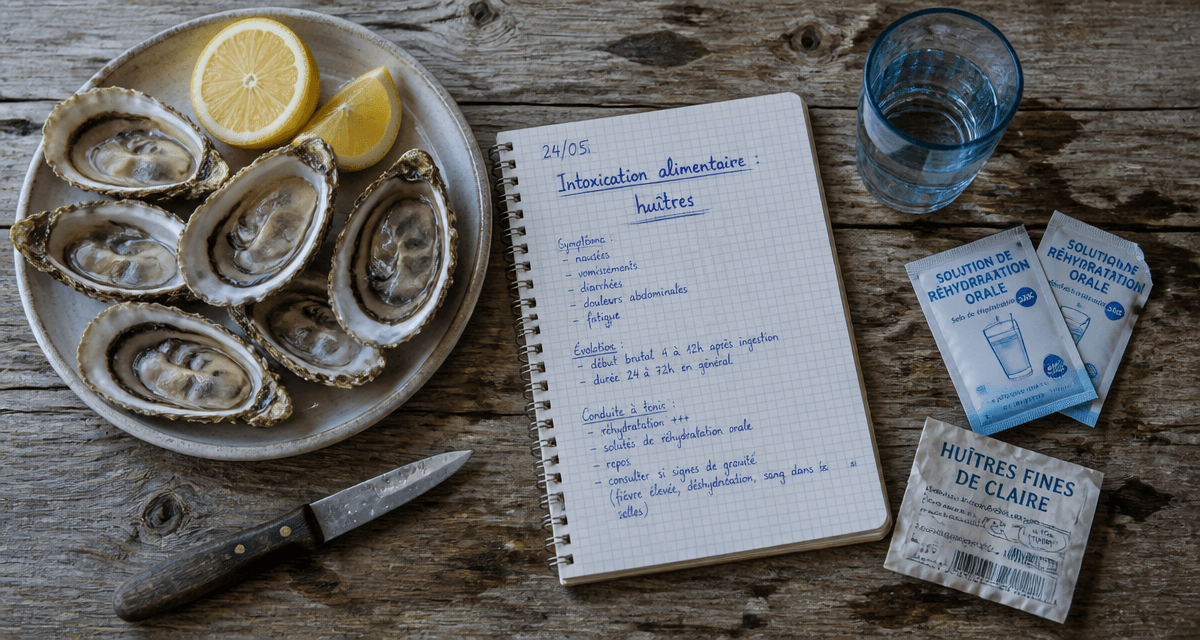 24/05.
Intoxication alimentaire :
huîtres
Symptôme :
- nausées
- vomissements
- diarrhées
- douleurs abdominales
- fatigue
Évolation :
- début brutal 4 à 12h après ingestion
- durée 24 à 72h en général.
Conduite à tonis :
- réhydratation +++
- solutés de réhydratation orale
- repos
- consulter si signes de gravité
(fièvre élevée, déshydration, sang dans
SOLUTION DE
RÉHYDRATATION
ORALE
SOLUTION DE
RÉHYDRATATION
ORALE
HUÎTRES FINES
DE CLAIRE